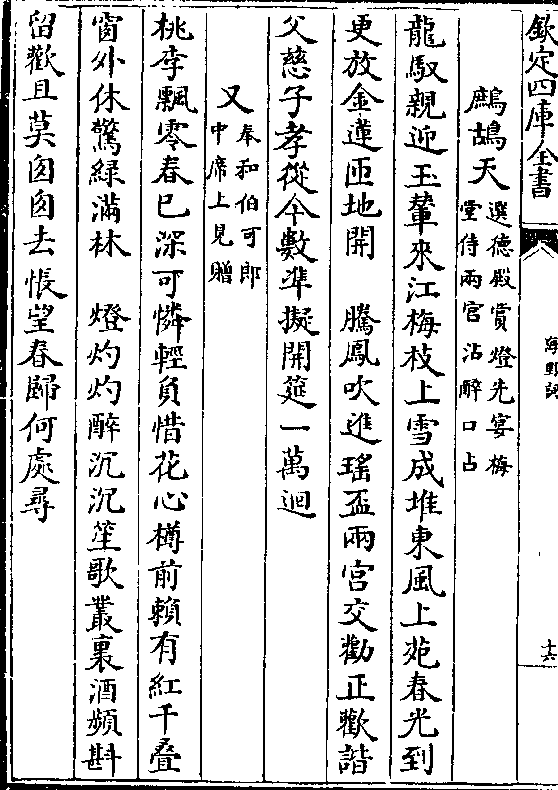 欽定四庫全書
鷓鴣天選德殿賞燈先宴梅堂侍兩宮沾醉口占
龍馭親迎玉輦來江梅枝上雪成堆東風上苑春光到
更放金蓮匝地開　騰鳳吹進瑤盃兩宮交勸正歡諧
父慈子孝從今數準擬開筵一萬迴
又奉和伯可郎中席上見贈
桃李飄零春已深可憐輕負惜花心樽前賴有紅千疊
窗外休驚緑滿林　燈灼灼醉沉沉笙歌叢裏酒頻斟
留歡且莫匆匆去悵望春歸何處尋
海野詞
十六